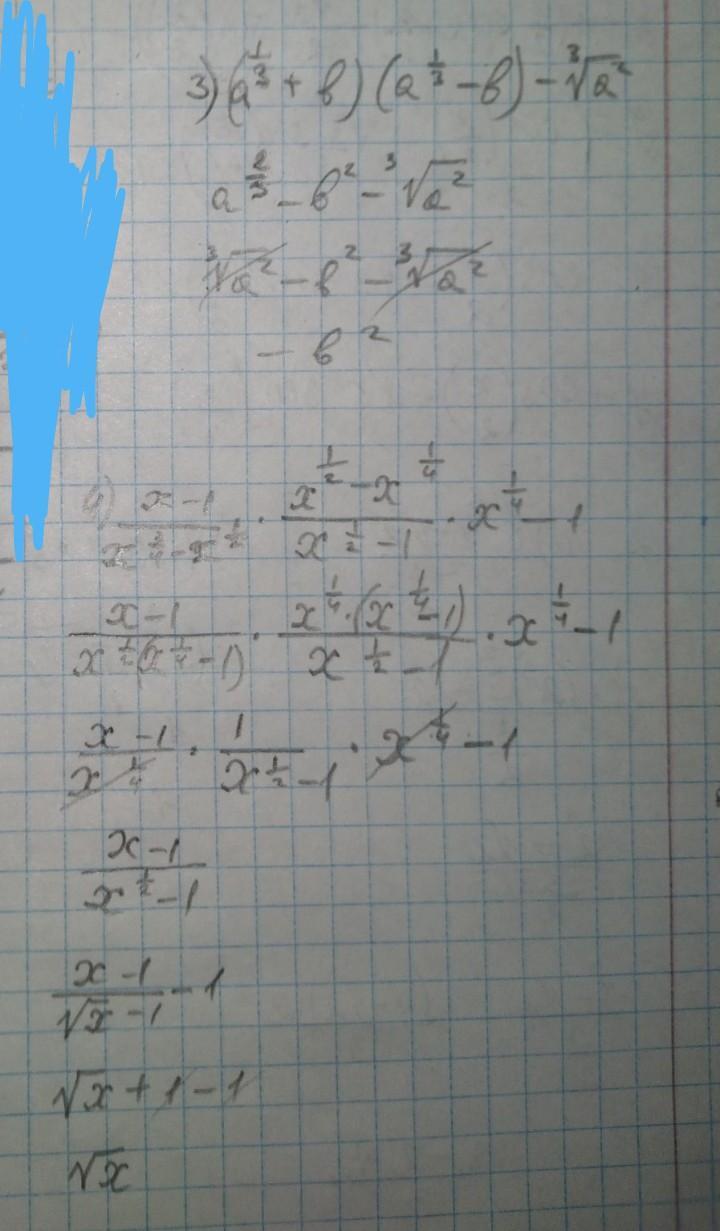 3) (a^{\frac{1}{3}} + b) (a^{\frac{1}{3}} - b) - \sqrt[3]{a^2}
a^{\frac{2}{3}} - b^2 - \sqrt[3]{a^2}
\sqrt[3]{a^2} - b^2 - \sqrt[3]{a^2}
- b^2
4) \frac{x-1}{x^{\frac{3}{4}} - x^{\frac{1}{2}}} \cdot \frac{x^{\frac{1}{2}} - x^{\frac{1}{4}}}{x^{\frac{1}{2}} - 1} \cdot x^{\frac{1}{4}} - 1
\frac{x-1}{x^{\frac{1}{2}}(x^{\frac{1}{4}} - 1)} \cdot \frac{x^{\frac{1}{4}} \cdot (x^{\frac{1}{4}} - 1)}{x^{\frac{1}{2}} - 1} \cdot x^{\frac{1}{4}} - 1
\frac{x-1}{x^{\frac{1}{4}}} \cdot \frac{1}{x^{\frac{1}{2}} - 1} \cdot x^{\frac{1}{4}} - 1
\frac{x-1}{x^{\frac{1}{2}} - 1}
\frac{x-1}{\sqrt{x} - 1} - 1
\sqrt{x} + 1 - 1
\sqrt{x}